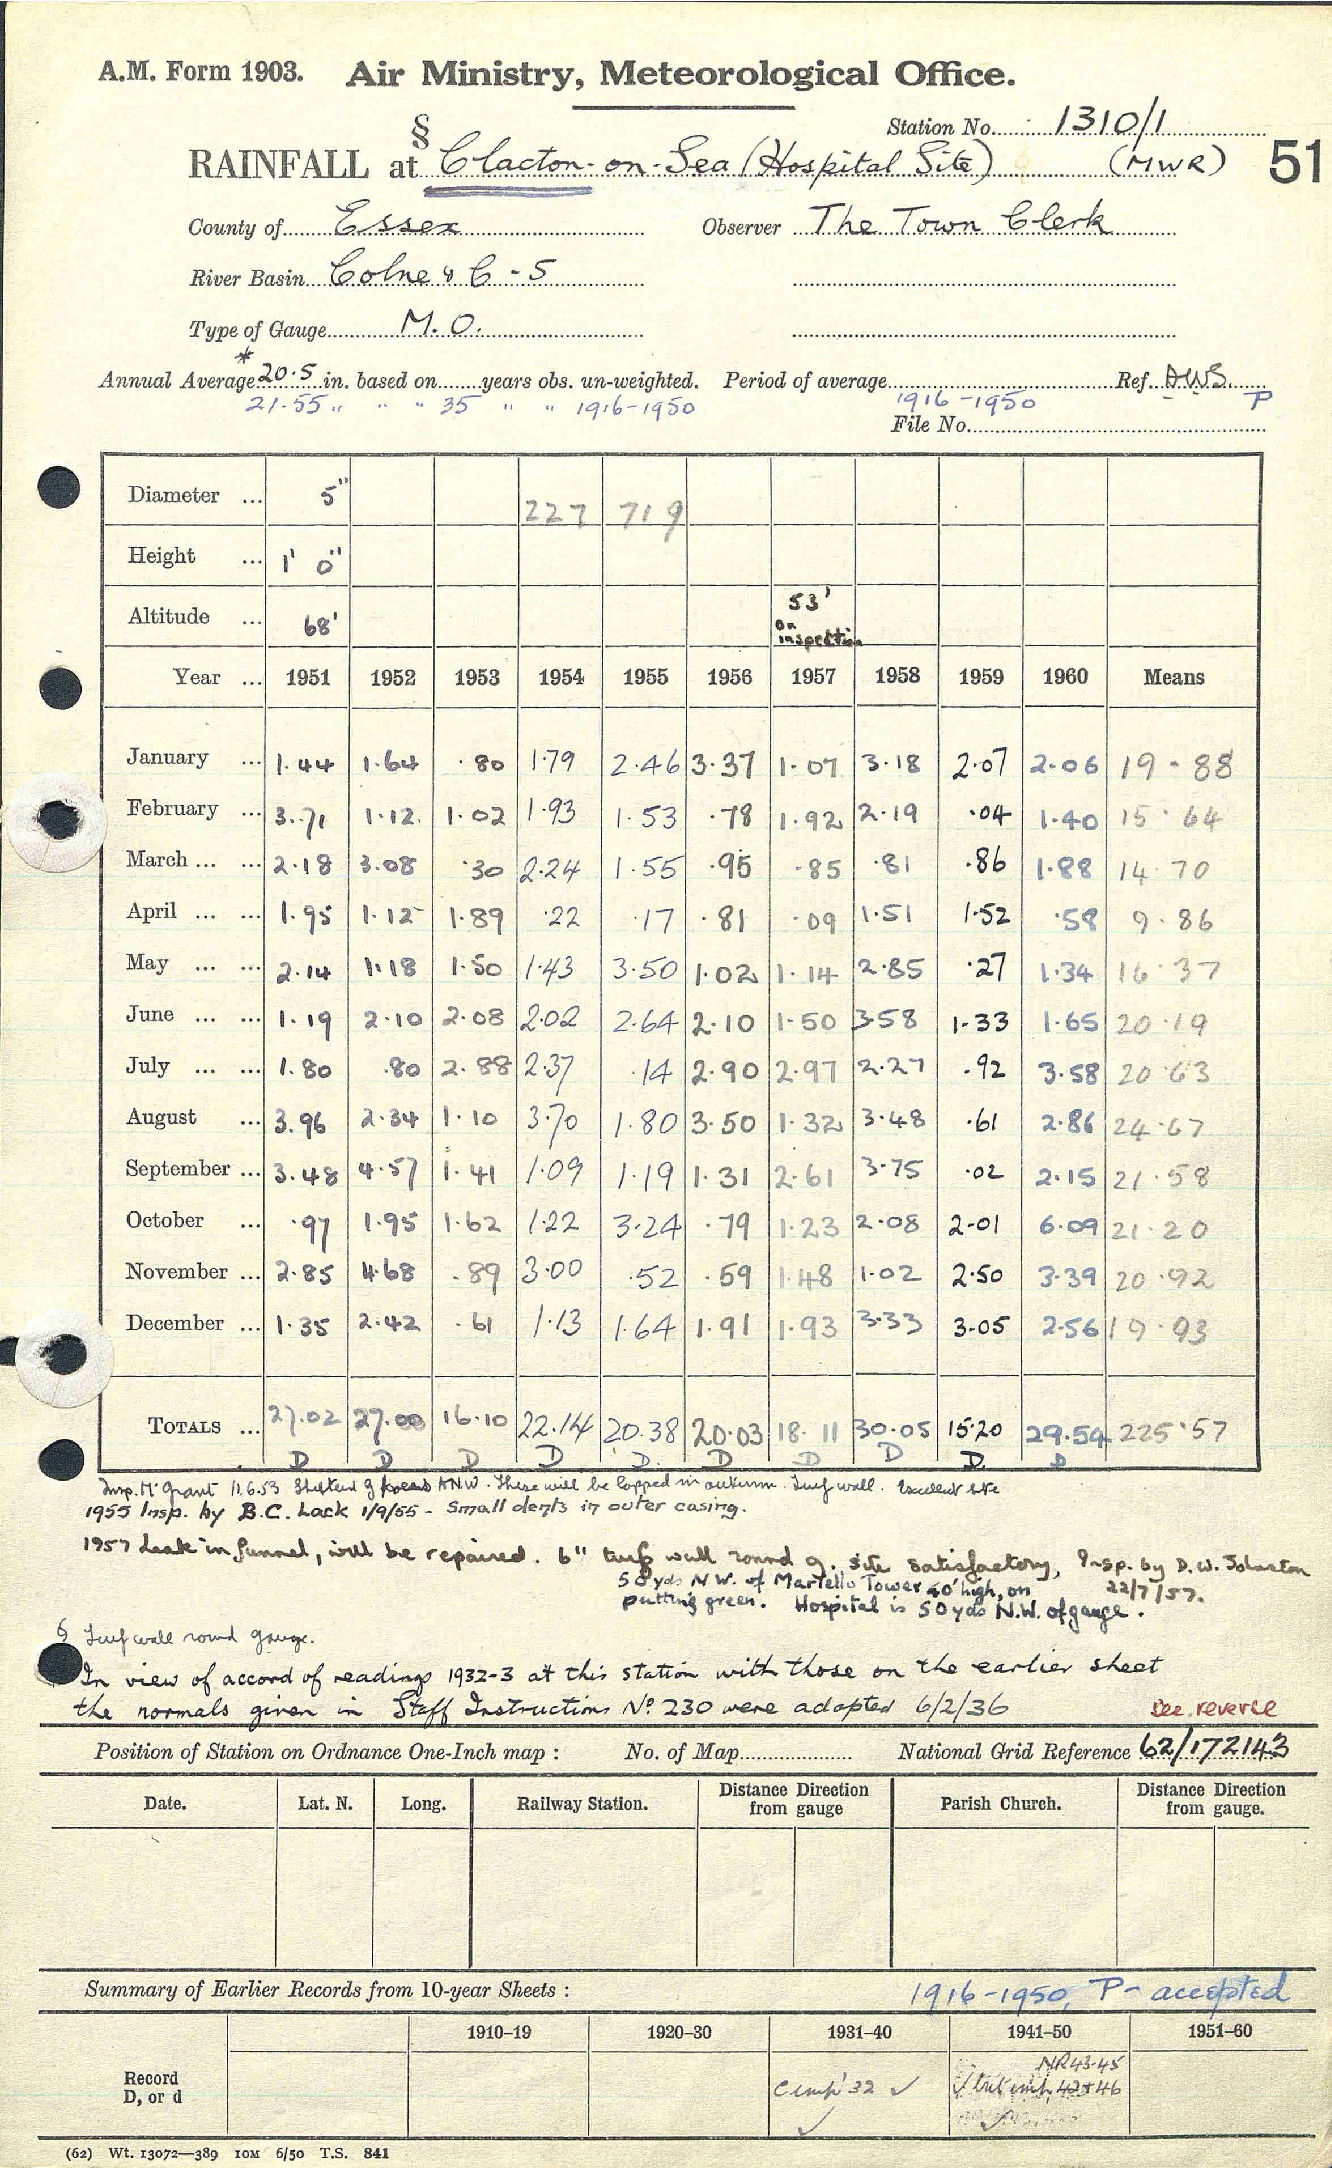 A.M. Form 1903. Air Ministry, Meteorological Office.
Station No. 1310/1
§
RAINFALL at Clacton-on-Sea (Hospital Site) (MWR) 51
County of Essex Observer The Town Clerk
River Basin Colne & C - 5
Type of Gauge M.O.
*
Annual Average 20.5 in. based on years obs. un-weighted. Period of average Ref. AWS.
21.55 " " " 35 " " 1916-1950 1916-1950 P
File No.
Diameter ... 5" 227 719
Height ... 1' 0"
Altitude ... 68' 53' on inspection
Year ... 1951 1952 1953 1954 1955 1956 1957 1958 1959 1960 Means
January ... 1.44 1.64 .80 1.79 2.46 3.37 1.07 3.18 2.07 2.06 19.88
February ... 3.71 1.12 1.02 1.93 1.53 .78 1.92 2.19 .04 1.40 15.64
March ... ... 2.18 3.08 .30 2.24 1.55 .95 .85 .81 .86 1.88 14.70
April ... ... 1.95 1.12 1.89 .22 .17 .81 .09 1.51 1.52 .58 9.86
May ... ... 2.14 1.18 1.50 1.43 3.50 1.02 1.14 2.85 .27 1.34 16.37
June ... ... 1.19 2.10 2.08 2.02 2.64 2.10 1.50 3.58 1.33 1.65 20.19
July ... ... 1.80 .80 2.88 2.37 .14 2.90 2.97 2.27 .92 3.58 20.63
August ... 3.96 2.34 1.10 3.70 1.80 3.50 1.32 3.48 .61 2.86 24.67
September ... 3.48 4.57 1.41 1.09 1.19 1.31 2.61 3.75 .02 2.15 21.58
October ... .97 1.95 1.62 1.22 3.24 .79 1.23 2.08 2.01 6.09 21.20
November ... 2.85 4.68 .89 3.00 .52 .59 1.48 1.02 2.50 3.39 20.92
December ... 1.35 2.42 .61 1.13 1.64 1.91 1.93 3.33 3.05 2.56 19.93
TOTALS ... 27.02 27.00 16.10 22.14 20.38 20.03 18.11 30.05 15.20 29.54 225.57
D D D D D. D D D D. D
Insp. Mr Grant 11.6.53 Sheltered by trees NNW. These will be lopped in autumn. Turf wall. Excellent site
1955 Insp. by B.C. Lack 1/9/55 - Small dents in outer casing.
1957 Leak in funnel, will be repaired. 6" turf wall round g. site satisfactory, Insp. by D.W. Johnston
50 yds NW. of Martello Tower 40' high, on 22/7/57.
putting green. Hospital is 50 yds N.W. of gauge.
§ Turf wall round gauge.
In view of accord of readings 1932-3 at this station with those on the earlier sheet
the normals given in Staff Instructions No. 230 were adopted 6/2/36 see reverse
Position of Station on Ordnance One-Inch map : No. of Map National Grid Reference 62/172143
Date. Lat. N. Long. Railway Station. Distance Direction from gauge Parish Church. Distance Direction from gauge.
Summary of Earlier Records from 10-year Sheets : 1916-1950, P- accepted
1910-19 1920-30 1931-40 1941-50 1951-60
Record
D, or d
Comp' 32 ✓
✓
NR 43-45
✓ but 42 & 46
(62) Wt. 13072—389 10M 6/50 T.S. 841